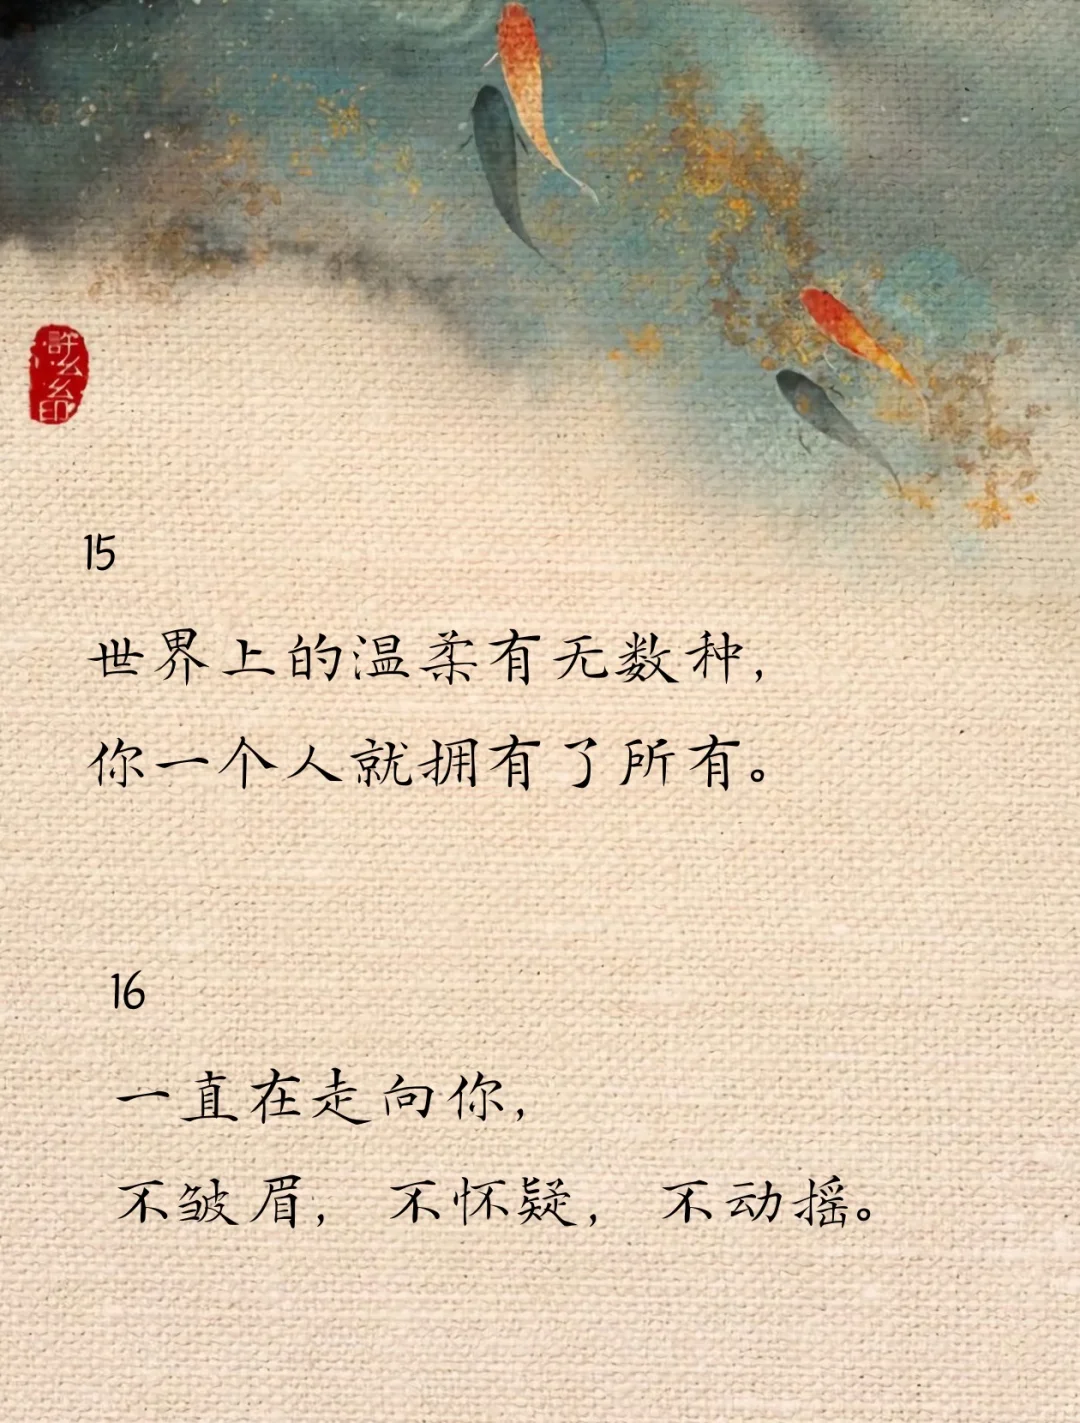 15
世界上的温柔有无数种，
你一个人就拥有了所有。
16
一直在走向你，
不皱眉， 不怀疑， 不动摇。